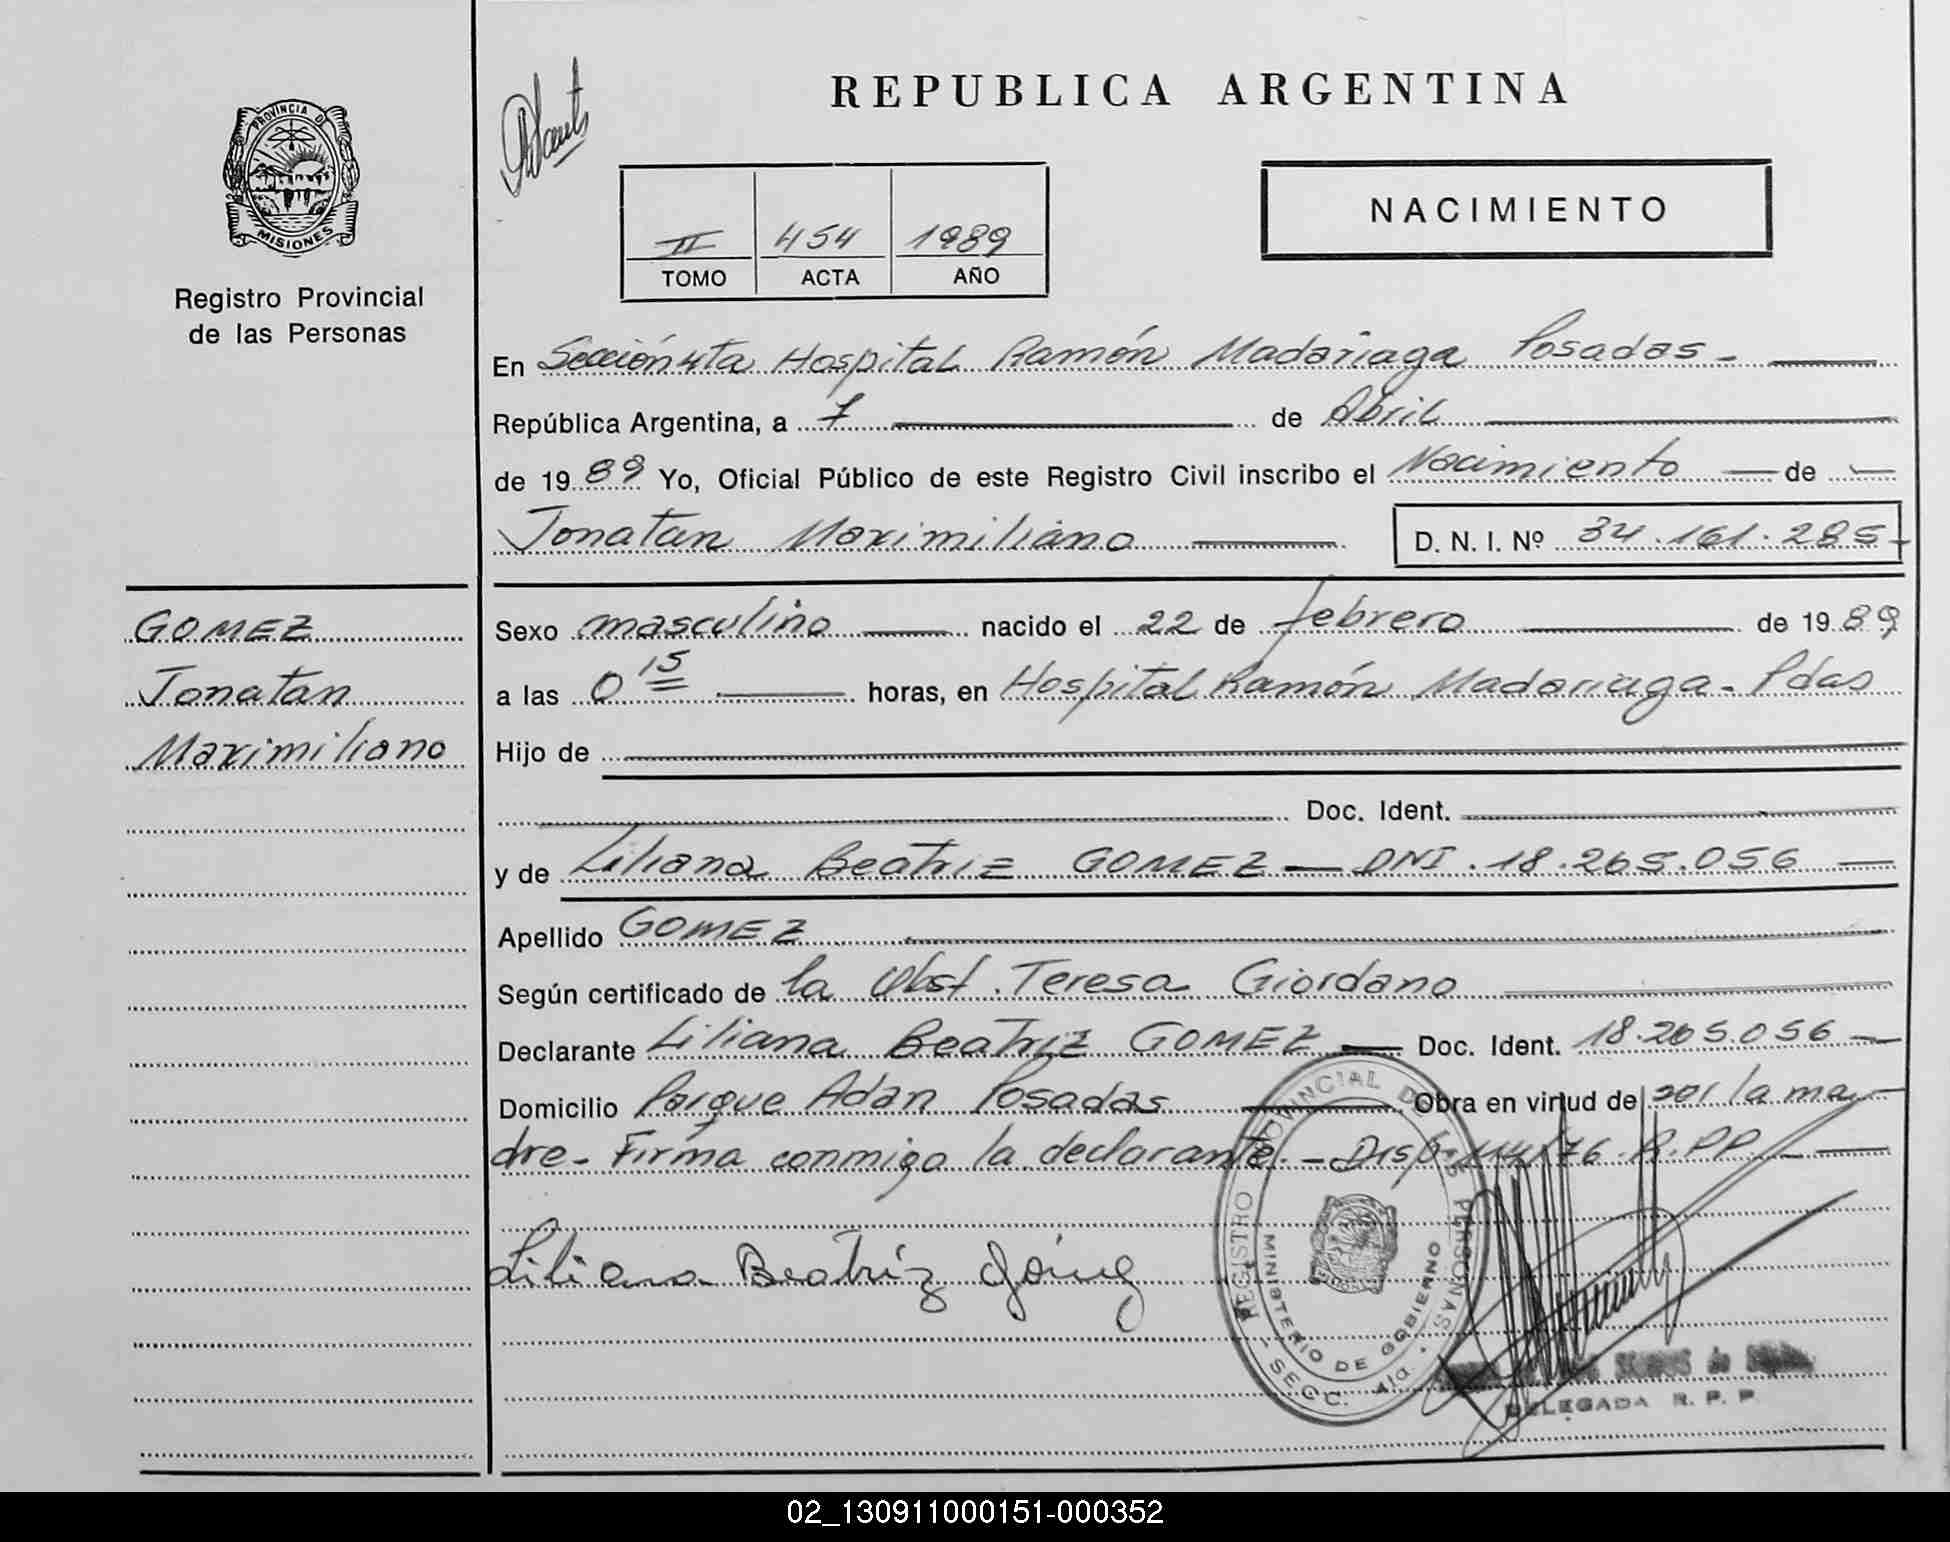 PROVINCIA D
MISIONES
Registro Provincial
de las Personas
REPUBLICA ARGENTINA
NACIMIENTO
II 454 1989
TOMO ACTA AÑO
En Sección 4ta Hospital Ramón Madariaga Posadas -
República Argentina, a 7 de Abril
de 1989 Yo, Oficial Público de este Registro Civil inscribo el Nacimiento de
Jonatan Maximiliano D. N. I. Nº 34.161.285-
GOMEZ
Jonatan
Maximiliano
Sexo masculino nacido el 22 de febrero de 1989
a las 0 15 horas, en Hospital Ramón Madariaga - Pdas
Hijo de
Doc. Ident.
y de Liliana Beatriz GOMEZ — DNI. 18.265.056
Apellido GOMEZ
Según certificado de la Obst. Teresa Giordano
Declarante Liliana Beatriz GOMEZ Doc. Ident. 18.265.056
Domicilio Parque Adan Posadas Obra en virtud de la ma
dre - Firma conmigo la declarante. - Disp. 76. R.PP.
Liliana Beatriz Gómez
REGISTRO PROVINCIAL DE LAS PERSONAS
MINISTERIO DE GOBIERNO
- SECC. 4ta.
DELEGADA R. P. P.
02_130911000151-000352